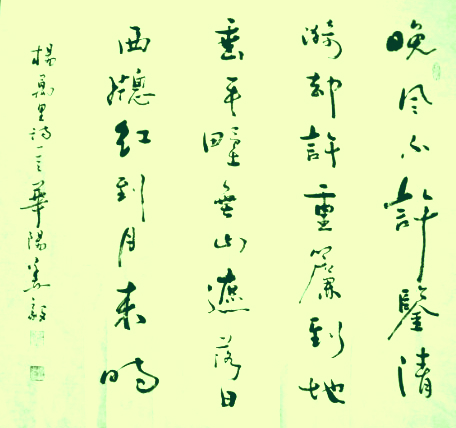 晚風不許鑒清
漪却許重簾到地
垂平野無山遮落日
西牕紅到月来時
楊萬里詩一首華陽毅